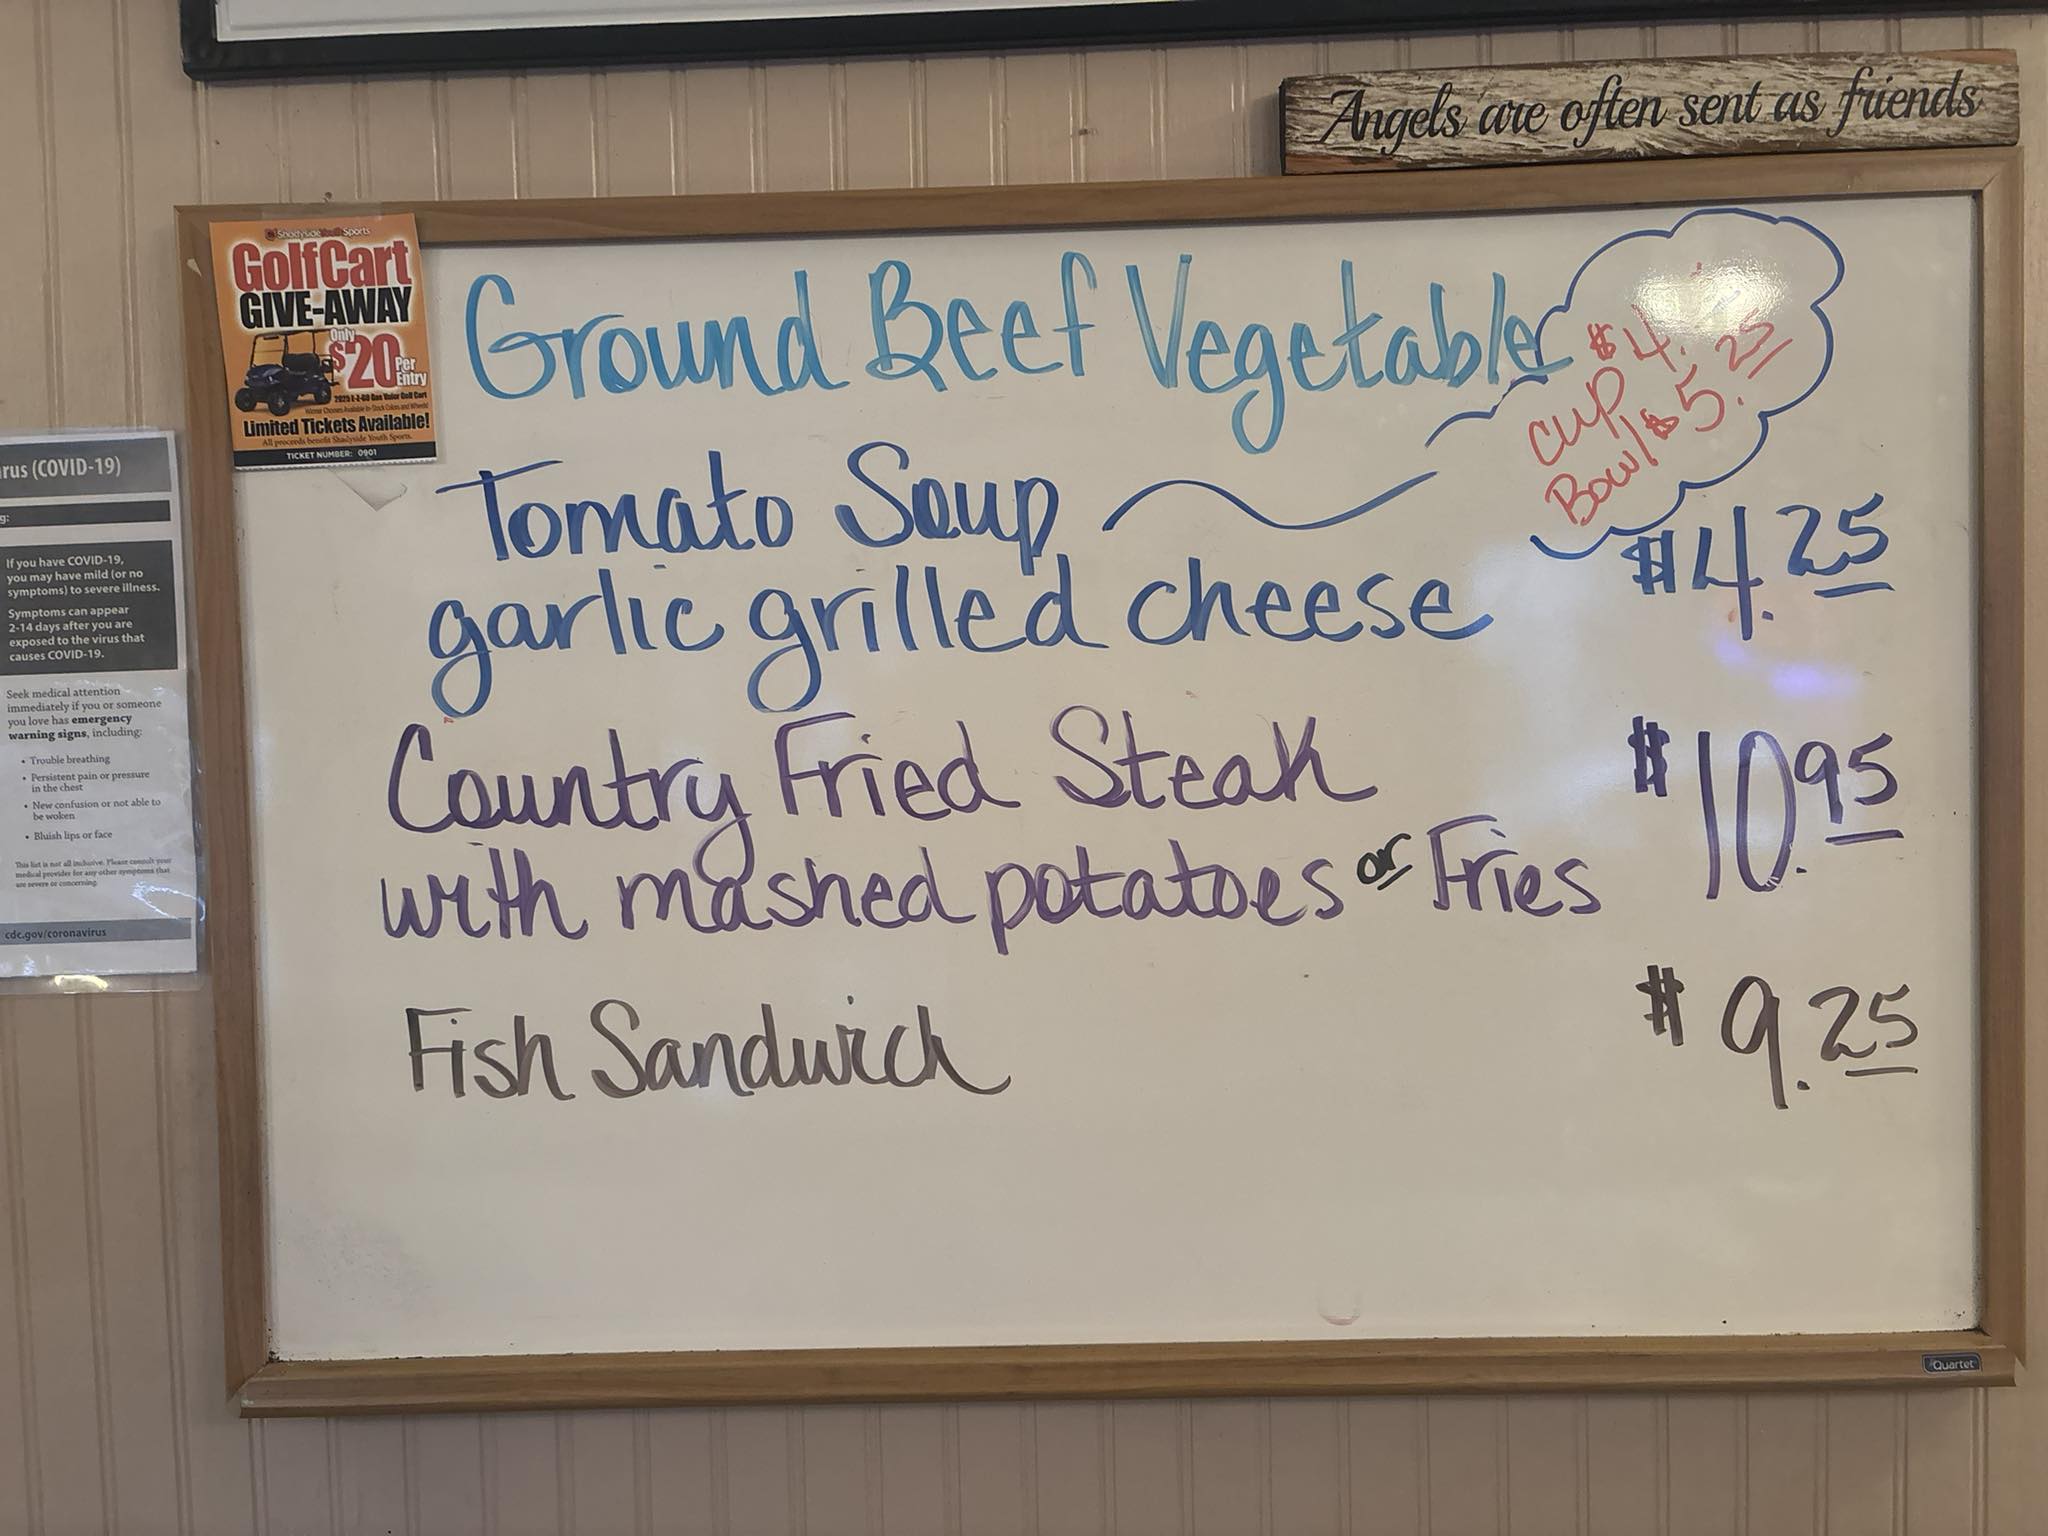 Angels are often sent as friends
Shadyside Youth Sports
GolfCart
GIVE-AWAY
Only
$20 Per Entry
2025 E-Z-GO Gas Valor Golf Cart
Winner Chooses Available In-Stock Colors and Wheels!
Limited Tickets Available!
All proceeds benefit Shadyside Youth Sports.
TICKET NUMBER: 0901
Ground Beef Vegetable
cup $4.
Bowl $5.25
Tomato Soup
garlic grilled cheese $4.25
Country Fried Steak $10.95
with mashed potatoes or Fries
Fish Sandwich $9.25
Quartet
rus (COVID-19)
g:
If you have COVID-19,
you may have mild (or no
symptoms) to severe illness.
Symptoms can appear
2-14 days after you are
exposed to the virus that
causes COVID-19.
Seek medical attention
immediately if you or someone
you love has emergency
warning signs, including:
• Trouble breathing
• Persistent pain or pressure
in the chest
• New confusion or not able to
be woken
• Bluish lips or face
This list is not all inclusive. Please consult your
medical provider for any other symptoms that
are severe or concerning.
cdc.gov/coronavirus